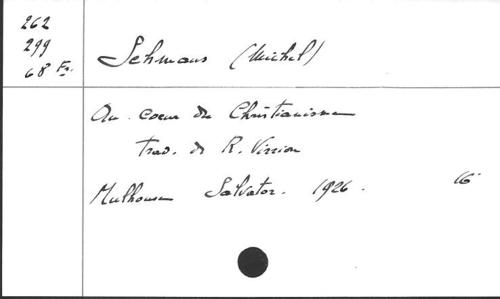 262
299
68 Fr.
Schmaus (Michel)
Au coeur du Christianisme
trad. de R. Virrion
Mulhouse Salvator. 1926.
16°